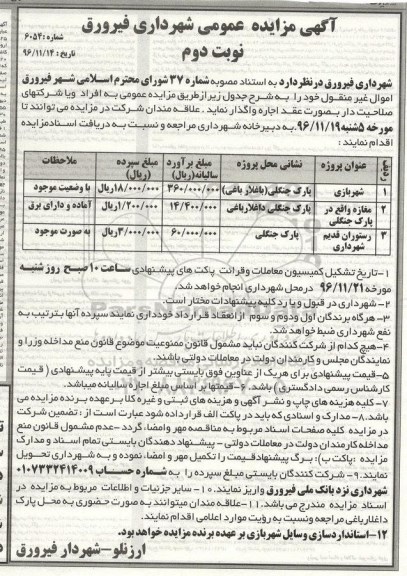 آگهی مزایده عمومی شهرداری فیرورق
نوبت دوم
شماره : ۶۰۵۴
تاریخ : ۹۶/۱۱/۱۴
شهرداری فیرورق در نظر دارد به استناد مصوبه شماره ۳۷ شورای محترم اسلامی شهر فیرورق
اموال غیر منقول خود را به شرح جدول زیر از طریق مزایده عمومی به افراد ویا شرکتهای
صلاحیت دار بصورت عقد اجاره واگذار نماید . علاقه مندان شرکت در مزایده می توانند تا
مورخه ۵شنبه ۹۶/۱۱/۱۹ به دبیرخانه شهرداری مراجعه و نسبت به دریافت اسناد مزایده
اقدام نمایند :
ردیف عنوان پروژه نشانی محل پروژه مبلغ برآورد سالیانه(ریال) مبلغ سپرده (ریال) ملاحظات
۱ شهربازی پارک جنگلی(باغلار باغی) ۳۶۰/۰۰۰/۰۰۰ ۱۸/۰۰۰/۰۰۰ریال با وضعیت موجود
۲ مغازه واقع در پارک جنگلی پارک جنگلی داغلارباغی ۱۴/۴۰۰/۰۰۰ ۱/۲۰۰/۰۰۰ریال آماده و دارای برق
۳ رستوران قدیم شهرداری پارک جنگلی ۶۰/۰۰۰/۰۰۰ ۳/۰۰۰/۰۰۰ریال به صورت موجود
۱-تاریخ تشکیل کمیسیون معاملات وقرائت پاکت های پیشنهادی ساعت ۱۰ صبح روز شنبه
مورخه ۹۶/۱۱/۲۱ درمحل شهرداری انجام خواهد شد.
۲- شهرداری در قبول و یا رد کلیه پیشنهادات مختار است .
۳- هرگاه برندگان اول و دوم و سوم از انعقاد قرارداد خودداری نمایند سپرده آنها بترتیب به
نفع شهرداری ضبط خواهد شد.
۴-هیچ کدام از شرکت کنندگان نباید مشمول قانون ممنوعیت موضوع قانون منع مداخله وزرا و
نمایندگان مجلس و کارمندان دولت در معاملات دولتی باشند.
۵-قیمت پیشنهادی برای هریک از عناوین فوق بایستی بیشتر از قیمت پایه پیشنهادی ( قیمت
کارشناس رسمی دادگستری ) باشد . ۶-قیمتها بر اساس مبلغ اجاره سالیانه میباشد.
۷- کلیه هزینه های چاپ و نشر آگهی و هزینه های ثبتی و غیره کلا بر عهده برنده مزایده می
باشد.۸- مدارک و اسنادی که باید در پاکت الف قرارداده شود عبارت است از : تضمین شرکت
در مزایده کلیه صفحات اسناد مربوط به مناقصه مهر وامضا. گردد -عدم مشمول قانون منع
مداخله کارمندان دولت در معاملات دولتی - پیشنهاد دهندگان بایستی تمام اسناد و مدارک
مزایده ( پاکت ب ): برگ پیشنهادقیمت را تکمیل مهر و امضا. نموده و به شهرداری تحویل
نمایند.۹- شرکت کنندگان بایستی مبلغ سپرده را به شماره حساب ۰۱۰۷۳۳۲۴۱۴۰۰۹
شهرداری نزد بانک ملی فیرورق واریز نمایند. ۱۰- سایر جزئیات و اطلاعات مربوط به مزایده در
اسناد مزایده مندرج می باشد. ۱۱-علاقه مندان میتوانند به صورت حضوری به محل پارک
داغلارباغی مراجعه ونسبت به رؤیت موارد اعلامی اقدام نمایند.
۱۲-استاندارد سازی وسایل شهربازی بر عهده برنده مزایده خواهد بود.
ارزنلو-شهردار فیرورق